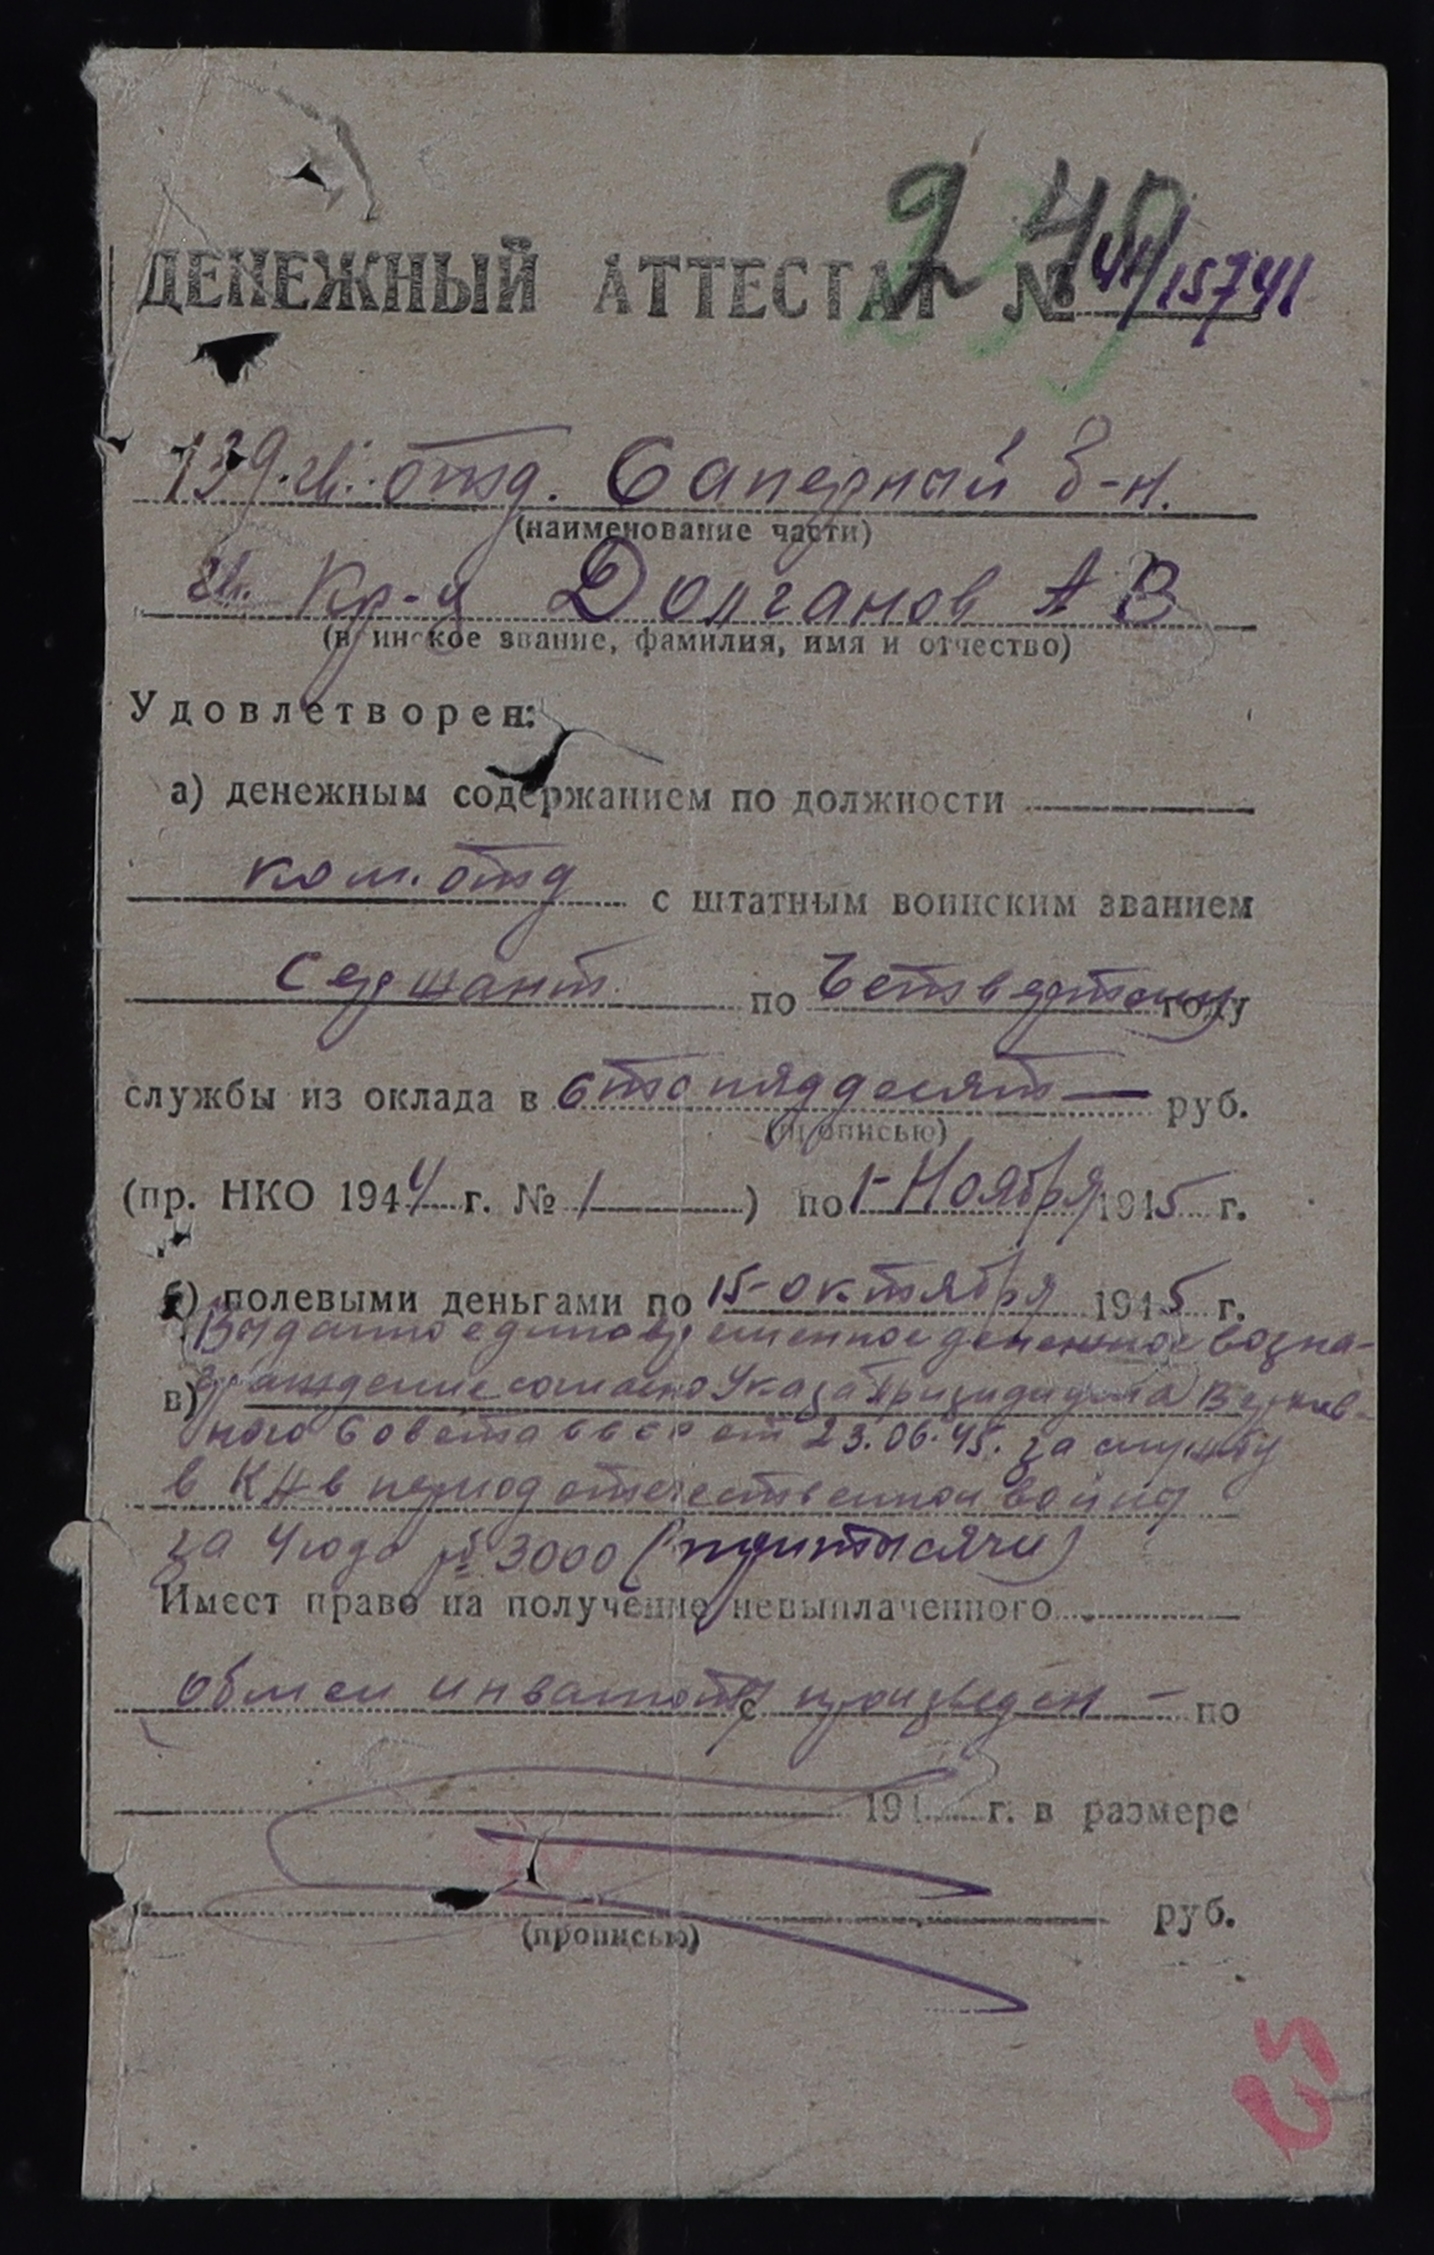 240
ДЕНЕЖНЫЙ АТТЕСТАТ № 15741
139 гв. отд. Саперный б-н.
(наименование части)
гв. Кр-ц Долганов А В
(воинское звание, фамилия, имя и отчество)
Удовлетворен:
а) денежным содержанием по должности
ком. отд с штатным воинским званием
Сержант по Четвертому году
службы из оклада в Сто пяддесят — руб.
(прописью)
(пр. НКО 1944 г. № 1) по 1- Ноября 1945 г.
б) полевыми деньгами по 15-октября 1945 г.
Выданно единовременное денежное возна-
в) граждение согласно Указа Призидиума Верхов-
ного Совета СССР от 23.06.45. за службу
в КА в период отечественной войны
за 4 года 3000 (три тысячи)
Имеет право на получение невыплаченного
обмен инвалюты произведен — по
с
194 г. в размере
руб.
(прописью)